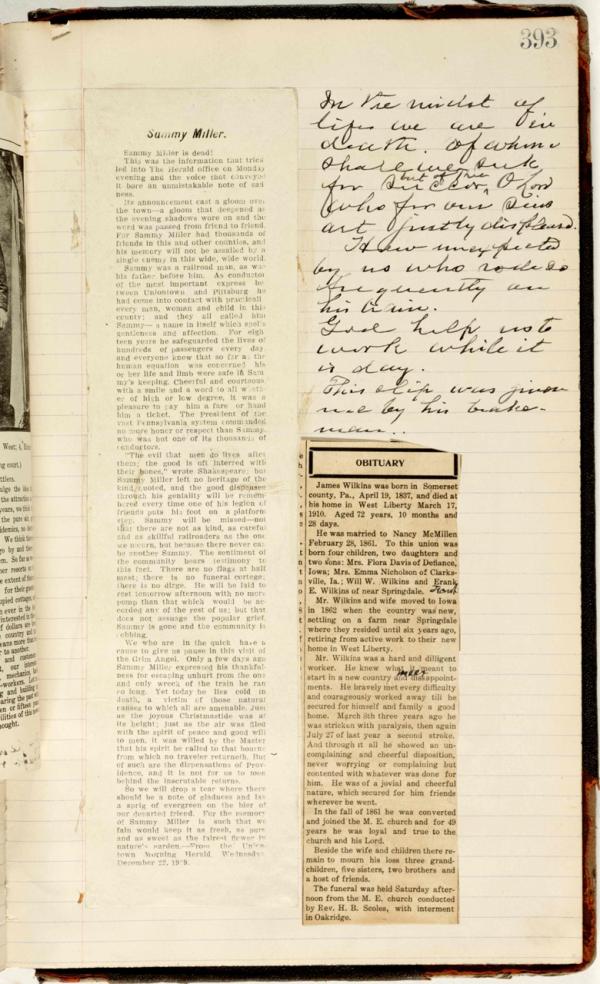 393
Sammy Miller.
Sammy Miller is dead!
This was the information that trick
led into The Herald office on Monday
evening and the voice that conveyed
it bore an unmistakable note of sad
ness.
Its announcement cast a gloom over
the town—a gloom that deepened as
the evening shadows wore on and the
word was passed from friend to friend.
For Sammy Miller had thousands of
friends in this and other counties, and
his memory will not be assailed by a
single enemy in this wide, wide world.
Sammy was a railroad man, as was
his father before him. As conductor
of the most important express be
tween Uniontown and Pittsburg he
had come into contact with practicall
every man, woman and child in this
county; and they all called him
Sammy— a name in itself which spel's
gentleness and affection. For eigh
teen years he safeguarded the lives of
hundreds of passengers every day
and everyone knew that so far as the
human equation was concerned his
or her life and limb were safe in Sam
my's keeping. Cheerful and courteous
with a smile and a word to all wheth
er of high or low degree, it was a
pleasure to pay him a fare or hand
him a ticket. The President of the
vast Pennsylvania system commanded
no more honor or respect than Sammy,
who was but one of its thousands of
conductors.
"The evil that men do lives after
them; the good is oft interred with
their bones," wrote Shakespeare; but
Sammy Miller left no heritage of the
kind noted, and the good dispensed
through his geniality will be remem-
bered every time one of his legion of
friends puts his foot on a platform
step. Sammy will be missed—not
that there are not as kind, as careful
and as skillful railroaders as the one
we mourn, but because there never can
be another Sammy. The sentiment of
the community bears testimony to
this fact. There are no flags at half
mast; there is no funeral cortege;
there is no dirge. He will be laid to
rest tomorrow afternoon with no more
pomp than that which would be ac-
corded any of the rest of us; but that
does not assuage the popular grief.
Sammy is gone and the community is
sobbing.
We who are in the quick have a
cause to give us pause in this visit of
the Grim Angel. Only a few days ago
Sammy Miller expressed his thankful-
ness for escaping unhurt from the one
and only wreck of the train he ran
so long. Yet today he lies cold in
death, a victim of those natural
causes to which all are amenable. Just
as the joyous Christmastide was at
its height; just as the air was filled
with the spirit of peace and good will
to men, it was willed by the Master
that his spirit be called to that bourne
from which no traveler returneth. But
of such are the dispensations of Prov-
idence, and it is not for us to seek
behind the inscrutable returns.
So we will drop a tear where there
should be a note of gladness and lay
a sprig of evergreen on the bier of
our departed friend. For the memory
of Sammy Miller is such that we
fain would keep it as fresh, as pure
and as sweet as the fairest flower in
nature's garden.—From the Union-
town Morning Herald, Wednesday
December 22, 1909.
In the midst of
life we are in
death. of whom
shall we seek
for succor, but of Thee O Lord
who for our sins
art justly displeased.
How unexpected
by us who rode so
frequently on
his train.
God help us to
work while it
is day.
This slip was given
me by his brake-
man.
OBITUARY
James Wilkins was born in Somerset
county, Pa., April 19, 1837, and died at
his home in West Liberty March 17,
1910. Aged 72 years, 10 months and
28 days.
He was married to Nancy McMillen
February 28, 1861. To this union was
born four children, two daughters and
two sons: Mrs. Flora Davis of Defiance,
Iowa; Mrs. Emma Nicholson of Clarks-
ville, Ia.; Will W. Wilkins and Frank
E. Wilkins of near Springdale,
Mr. Wilkins and wife moved to Iowa
in 1862 when the country was new,
settling on a farm near Springdale
where they resided until six years ago,
retiring from active work to their new
home in West Liberty.
Mr. Wilkins was a hard and diligent
worker. He knew what it meant to
start in a new country and meet disappoint-
ments. He bravely met every difficulty
and courageously worked away till he
secured for himself and family a good
home. March 5th three years ago he
was stricken with paralysis, then again
July 27 of last year a second stroke.
And through it all he showed an un-
complaining and cheerful disposition,
never worrying or complaining but
contented with whatever was done for
him. He was of a jovial and cheerful
nature, which secured for him friends
wherever he went.
In the fall of 1861 he was converted
and joined the M. E. church and for 49
years he was loyal and true to the
church and his Lord.
Beside the wife and children there re-
main to mourn his loss three grand-
children, five sisters, two brothers and
a host of friends.
The funeral was held Saturday after-
noon from the M. E. church conducted
by Rev. H. B. Scoles, with interment
in Oakridge.